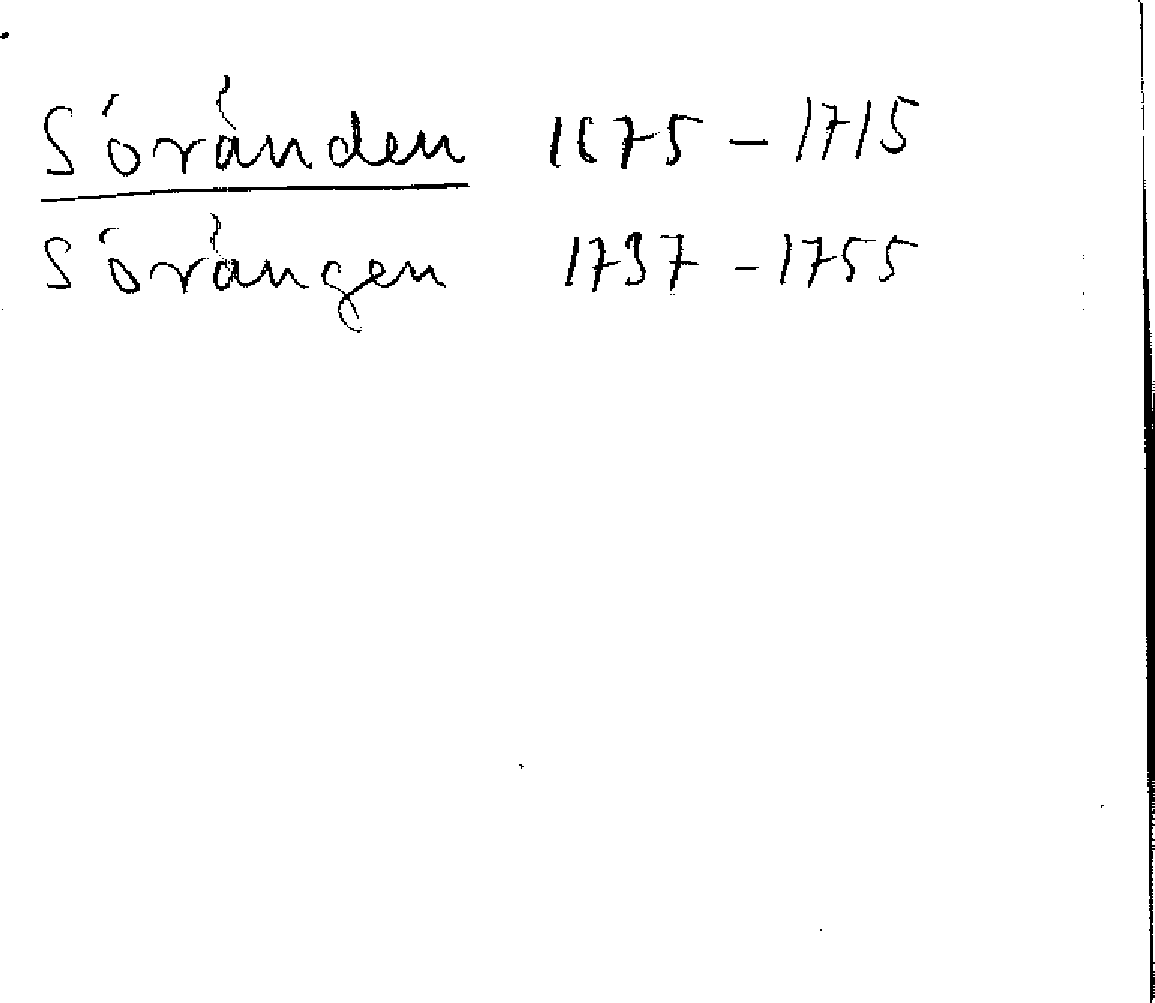 Söränden 1675 – 1715
Sörängen 1737 – 1755